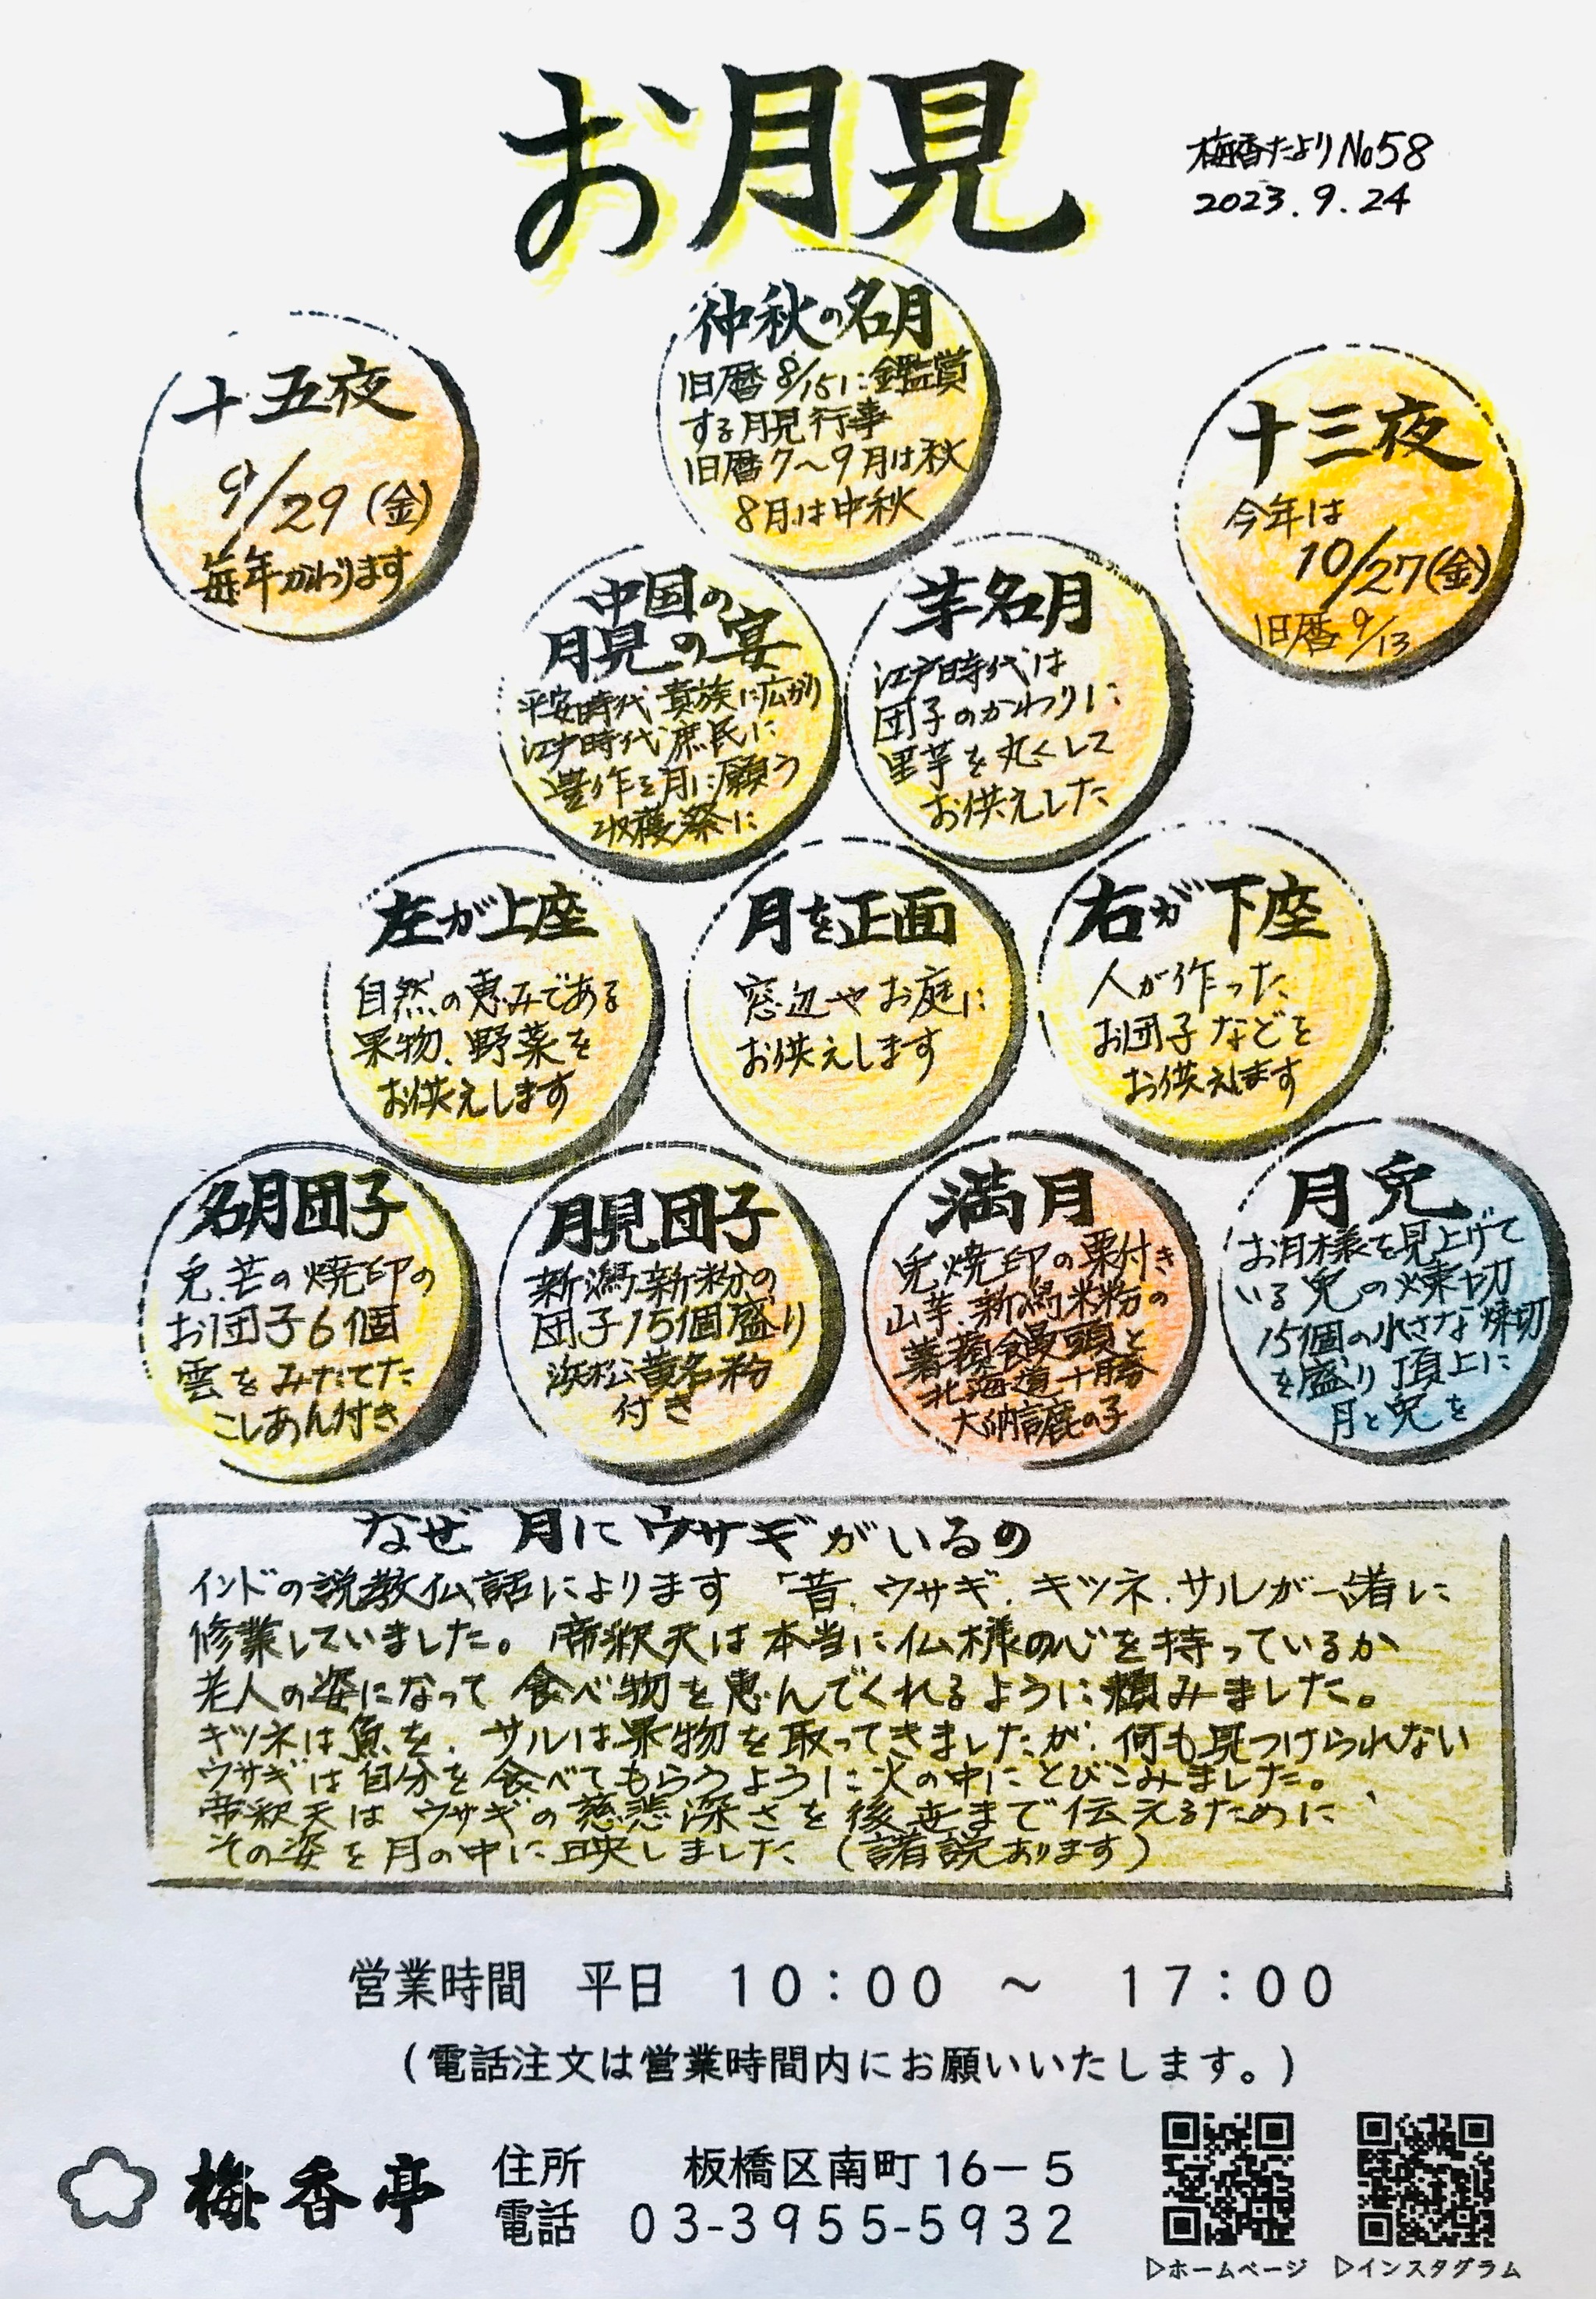 お月見
梅香だより No58
2023.9.24
仲秋の名月
旧暦8/15に鑑賞
する月見行事
旧暦7～9月は秋
8月は中秋
十五夜
9/29(金)
毎年かわります
十三夜
今年は
10/27(金)
旧暦9/13
中国の
月見の宴
平安時代貴族に広がり
江戸時代庶民に
豊作を月に願う
収穫祭に
芋名月
江戸時代は
団子のかわりに
里芋を丸くして
お供えした
左が上座
自然の恵みである
果物、野菜を
お供えします
月を正面
窓辺やお庭に
お供えします
右が下座
人が作った
お団子などを
お供えします
名月団子
兎、芒の焼印の
お団子6個
雲をみたてた
こしあん付き
月見団子
新潟新粉の
団子15個盛り
浜松黄名粉
付き
満月
兎焼印の栗付き
山芋、新潟米粉の
薯蕷饅頭と
北海道十勝
大納言鹿の子
月兎
お月様を見上げて
いる兎の煉切
15個の小さな煉切
を盛り頂上に
月と兎を
なぜ 月にウサギがいるの
インドの説教仏話によります 「昔、ウサギ、キツネ、サルが一諸に
修業していました。帝釈天は本当に仏様の心を持っているか
老人の姿になって 食べ物を恵んでくれるように頼みました。
キツネは魚を、サルは果物を取ってきましたが、何も見つけられない
ウサギは自分を食べてもらうように火の中にとびこみました。
帝釈天は ウサギの慈悲深さを後世まで伝えるために、
その姿を月の中に映しました (諸説あります)
営業時間 平日 10：00 ～ 17：00
(電話注文は営業時間内にお願いいたします。)
梅香亭
住所 板橋区南町16－5
電話 03-3955-5932
▷ホームページ ▷インスタグラム